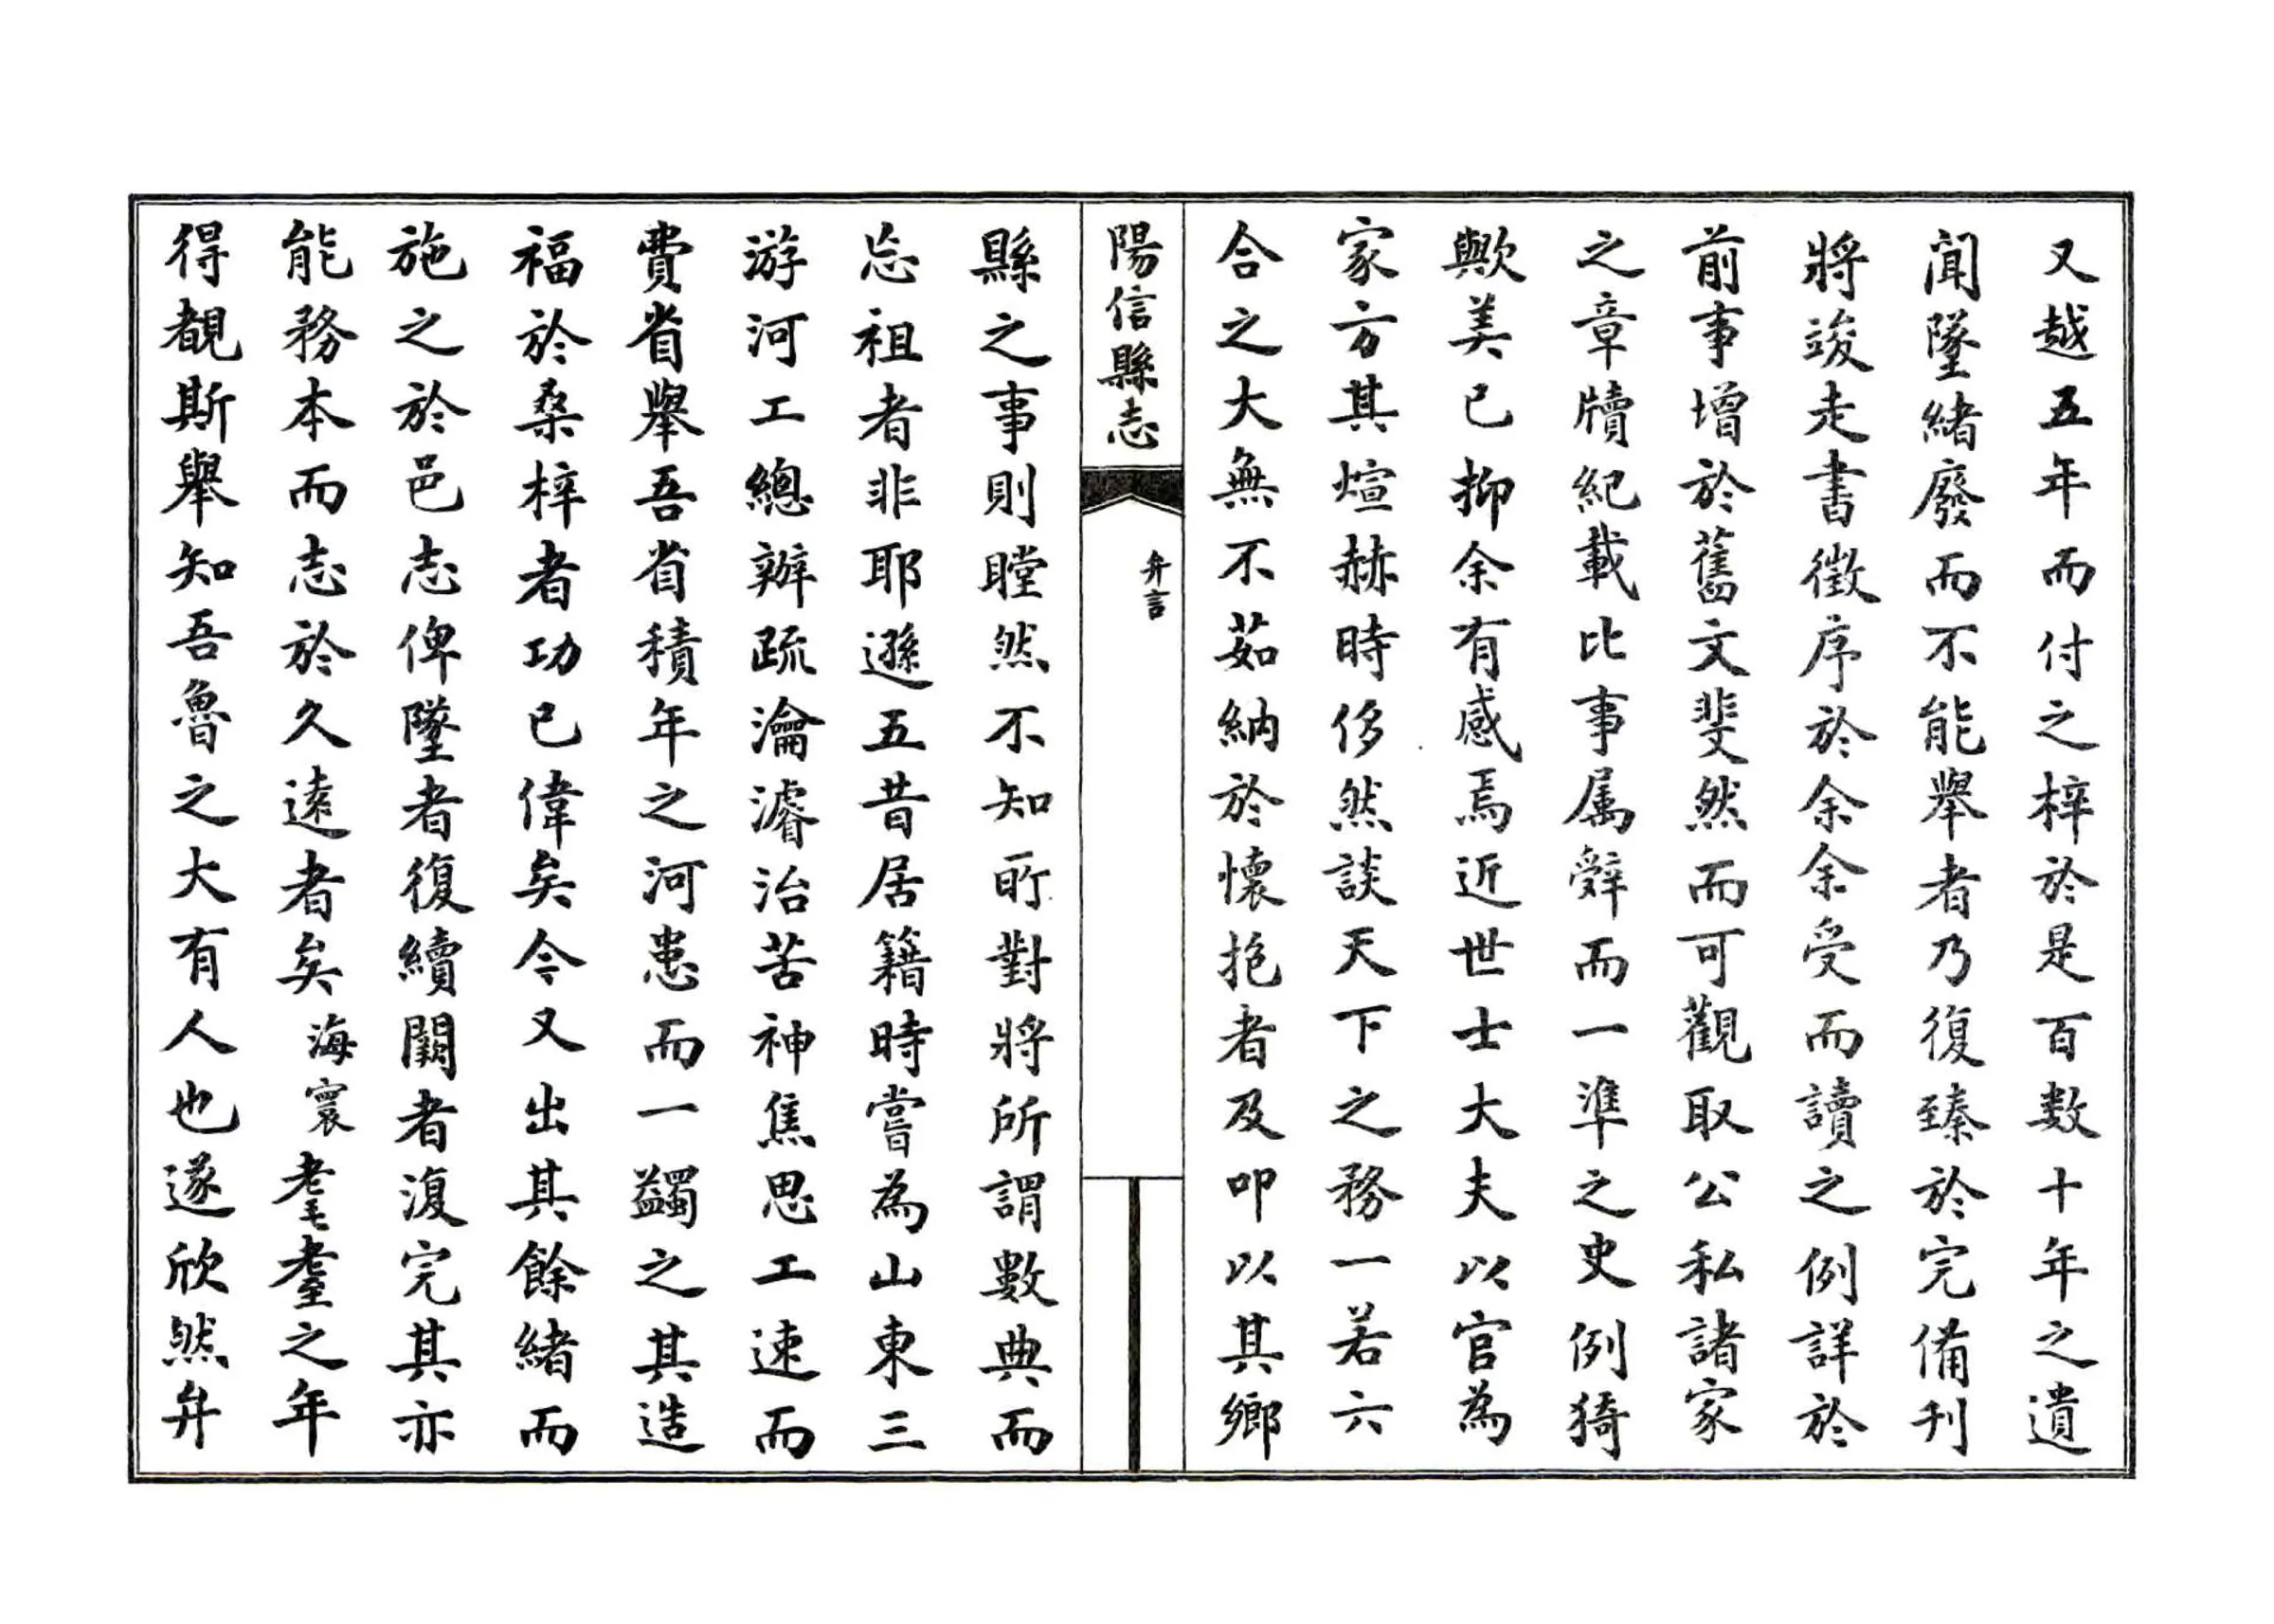 又越五年而付之梓於是百数十年之遺
聞墜緒廢而不能舉者乃復臻於完備刊
將竣走書徵序於余余受而讀之例詳於
前事增於舊文斐然而可觀取公私諸家
之章牘紀載比事属辤而一準之史例猗
歟美已抑余有感焉近世士大夫以官為
家方其煊赫時侈然談天下之務一若六
合之大無不茹納於懷抱者及叩以其鄉
陽信縣志
弁言
縣之事則瞠然不知所對將所謂數典而
忘祖者非耶遜五昔居籍時嘗為山東三
游河工總辦疏瀹濬治苦神焦思工速而
費省舉吾省積年之河患而一蠲之其造
福於桑梓者功已偉矣今又出其餘緒而
施之於邑志俾墜者復續闕者復完其亦
能務本而志於久遠者矣海寰耄耋之年
得覩斯舉知吾魯之大有人也遂欣然弁